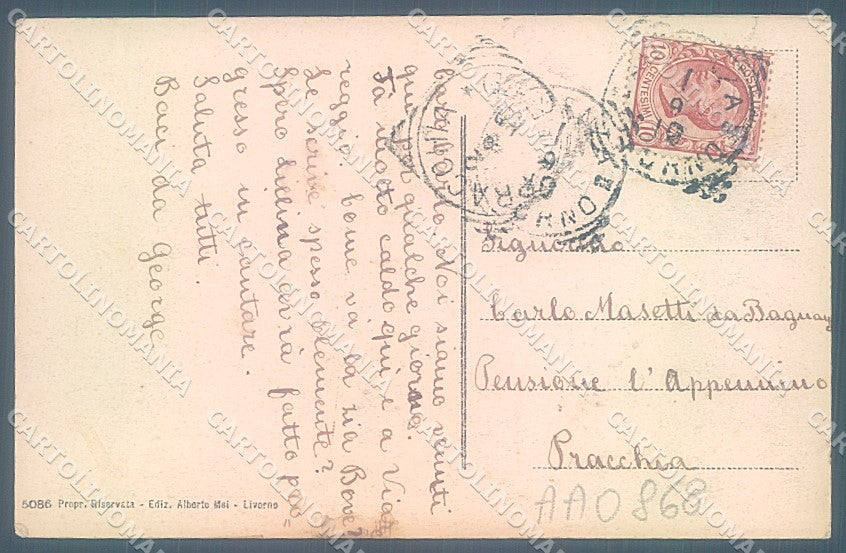 Caro Carlo. Noi siamo venuti
qui per qualche giorno.
Fà molto caldo qui e a Viar
reggio. Come va la zia Bove?
Le scrive spesso Clemente?
Spero Lilina avrà fatto pro=
gresso in cantare.
Saluta tutti.
Baci da George
10 CENTESIMI 10
Signorino
Carlo Masetti da Bagnay
Pensione l'Appennino
Pracchia
AA0868
5086 Propr. Riservata - Ediz. Alberto Mei - Livorno
CARTOLINOMANIA